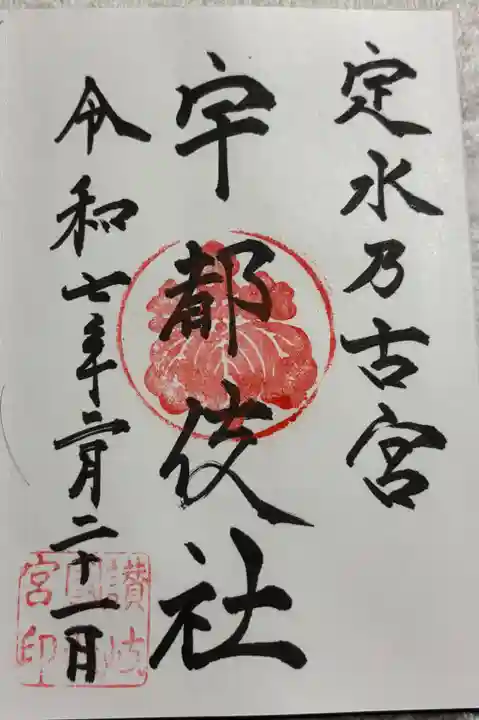 定水乃古宮
宇都伎社
令和七年二月二十一日
讃岐
宮印